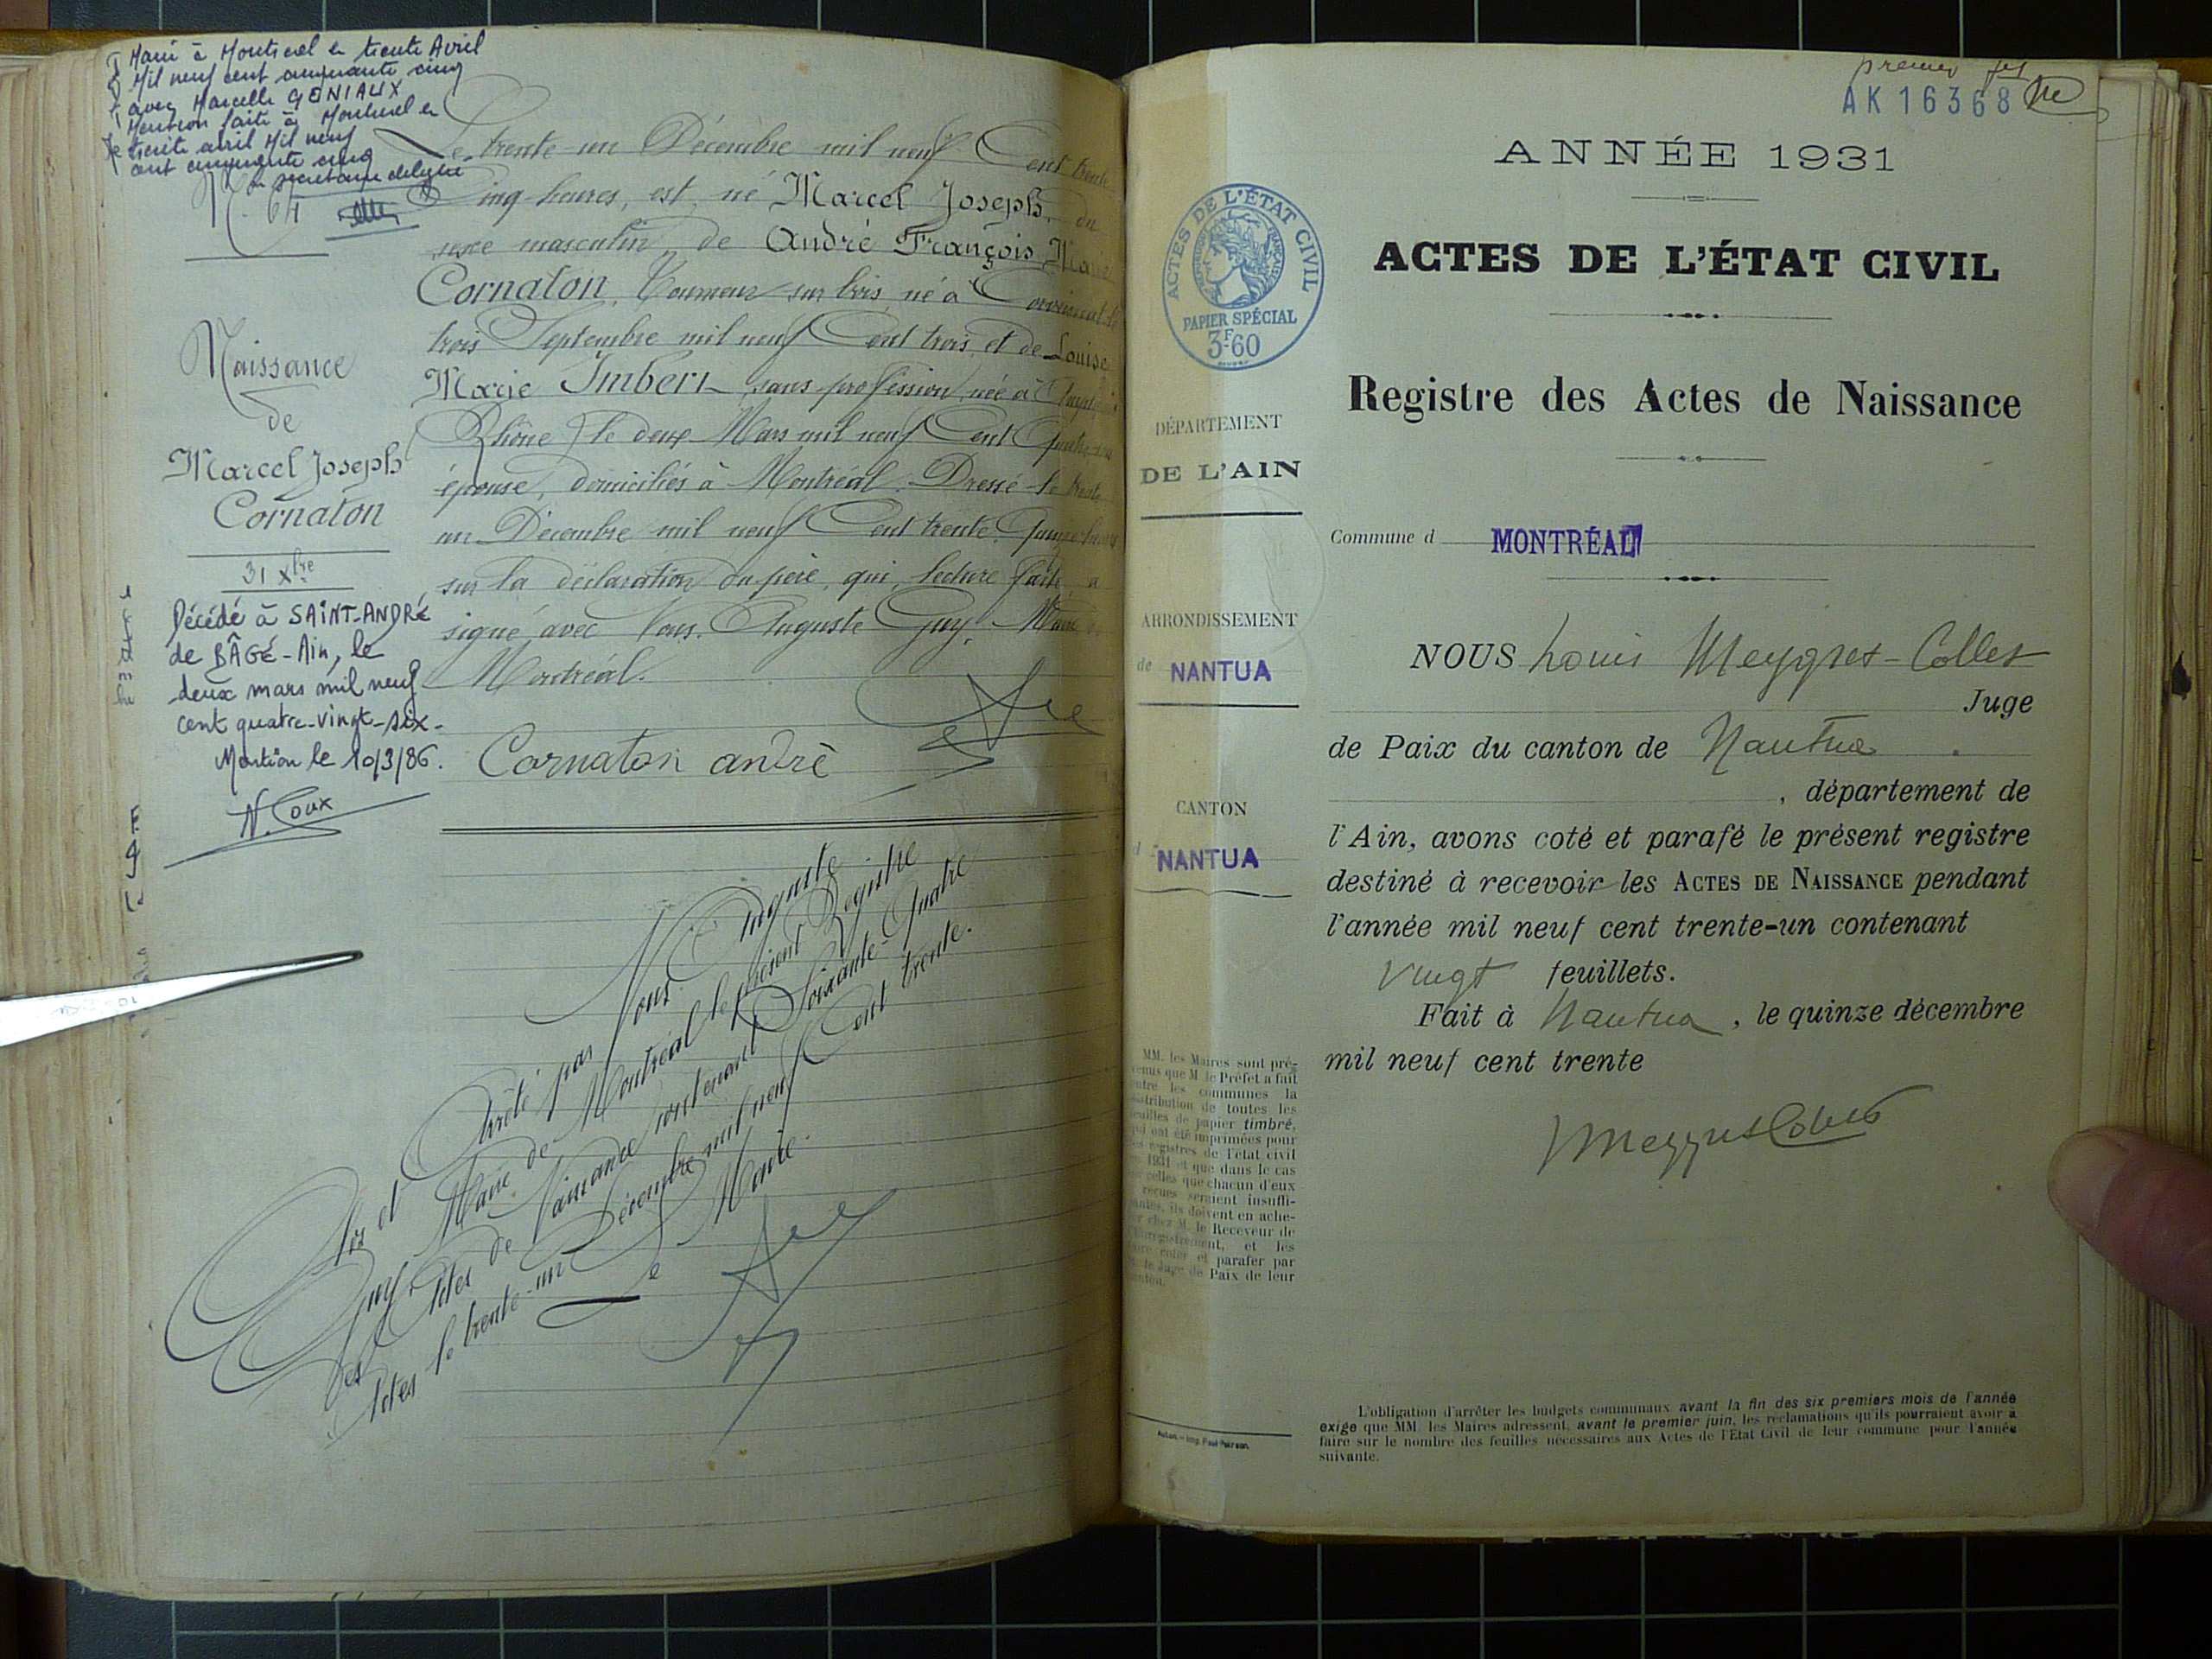 Marié à Montréal le trente Avril
Mil neuf cent cinquante cinq
avec Marcelle GÉNIAUX
Mention faite à Montréal le
trente avril Mil neuf
cent cinquante cinq
Le secrétaire délégué
N. 64
Naissance
de
Marcel Joseph
Cornaton
31 Xbre
Décédé à SAINT-ANDRÉ
de BÂGÉ-Ain, le
deux mars mil neuf
cent quatre-vingt-six.
Mention le 10/3/86.
N. Coux
Le trente un Décembre mil neuf Cent trente
Cinq heures, est né Marcel Joseph, du
sexe masculin, de André François Marie
Cornaton, Tourneur sur bois, né à
trois Septembre mil neuf Cent trois, et de Louise
Marie Imbert, sans profession, née à
(Rhône) le deux Mars mil neuf Cent
épouse, domiciliés à Montréal. Dressé le trente
un Décembre mil neuf Cent trente,
sur la déclaration du père, qui, lecture faite, a
signé avec Nous. Auguste Guy, Maire de
Montréal.
Cornaton andré
Clos et Arrêté par Nous Auguste
Guy, Maire de Montréal le présent Registre
des Actes de Naissance contenant Soixante-Quatre
Actes le trente-un Décembre mil neuf Cent trente.
Le Maire.
premier
AK 16368
ANNÉE 1931
ACTES DE L'ÉTAT CIVIL
Registre des Actes de Naissance
ACTES DE L'ÉTAT CIVIL
PAPIER SPÉCIAL
3F60
DÉPARTEMENT
DE L'AIN
Commune d MONTRÉAL
ARRONDISSEMENT
de NANTUA
CANTON
d NANTUA
NOUS Louis Meygret-Collet
Juge
de Paix du canton de Nantua
, département de
l'Ain, avons coté et parafé le présent registre
destiné à recevoir les ACTES DE NAISSANCE pendant
l'année mil neuf cent trente-un contenant
vingt feuillets.
Fait à Nantua, le quinze décembre
mil neuf cent trente
MM. les Maires sont pré-
venus que M. le Préfet a fait
entre les communes la
distribution de toutes les
feuilles de papier timbré,
qui ont été imprimées pour
les registres de l'état civil
1931 et que dans le cas
celles que chacun d'eux
reçues seraient insuffi-
santes, ils doivent en ache-
ter chez M. le Receveur de
l'Enregistrement, et les
faire coter et parafer par
le Juge de Paix de leur
canton.
L'obligation d'arrêter les budgets communaux avant la fin des six premiers mois de l'année
exige que MM. les Maires adressent, avant le premier juin, les réclamations qu'ils pourraient avoir à
faire sur le nombre des feuilles nécessaires aux Actes de l'État Civil de leur commune pour l'année
suivante.